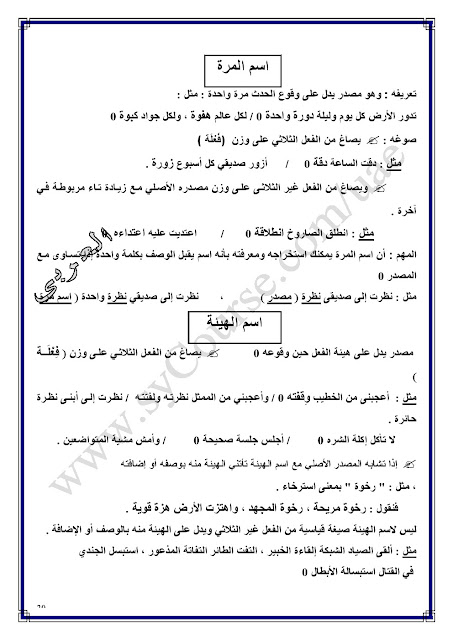 اسم المرة
تعريفه : وهو مصدر يدل على وقوع الحدث مرة واحدة : مثل :
تدور الأرض كل يوم وليلة دورة واحدة 0 / لكل عالم هفوة ، ولكل جواد كبوة 0
صوغه : يصاغ من الفعل الثلاثي على وزن (فَعْلة )
مثل : دقت الساعة دقة 0 / أزور صديقي كل أسبوع زورة .
ويصاغ من الفعل غير الثلاثى على وزن مصدره الأصلي مع زيادة تاء مربوطة في
آخرة .
مثل : انطلق الصاروخ انطلاقة 0 / اعتديت عليه اعتداءه
المهم : أن اسم المرة يمكنك استخراجه ومعرفته بأنه اسم يقبل الوصف بكلمة واحدة يتساوى مع
المصدر 0
مثل : نظرت إلى صديقى نظرة ( مصدر ) ، نظرت إلى صديقي نظرة واحدة ( اسم مرة )
اسم الهيئة
مصدر يدل على هيئة الفعل حين وقوعه 0 يصاغ من الفعل الثلاثي على وزن ( فِعْلَــة
)
مثل : أعجبنى من الخطيب وِقْفته 0 / وأعجبني من الممثل نظرته ولفتته / نظرت إلى أبنى نظرة
حائرة .
لا تأكل إكلة الشره 0 / أجلس جلسة صحيحة 0 / وأمش مشية المتواضعين .
إذا تشابه المصدر الأصلي مع اسم الهيئة تأتي الهيئة منه بوصفه أو إضافته
، مثل : " رخوة " بمعنى استرخاء .
فنقول : رخوة مريحة ، رخوة المجهد ، واهتزت الأرض هزة قوية .
ليس لاسم الهيئة صيغة قياسية من الفعل غير الثلاثي ويدل على الهيئة منه بالوصف أو الإضافة .
مثل : ألقى الصياد الشبكة إلقاءة الخبير ، التفت الطائر التفاتة المذعور ، استبسل الجندي
في القتال استبسالة الأبطال 0
www.syCourse.com/uae